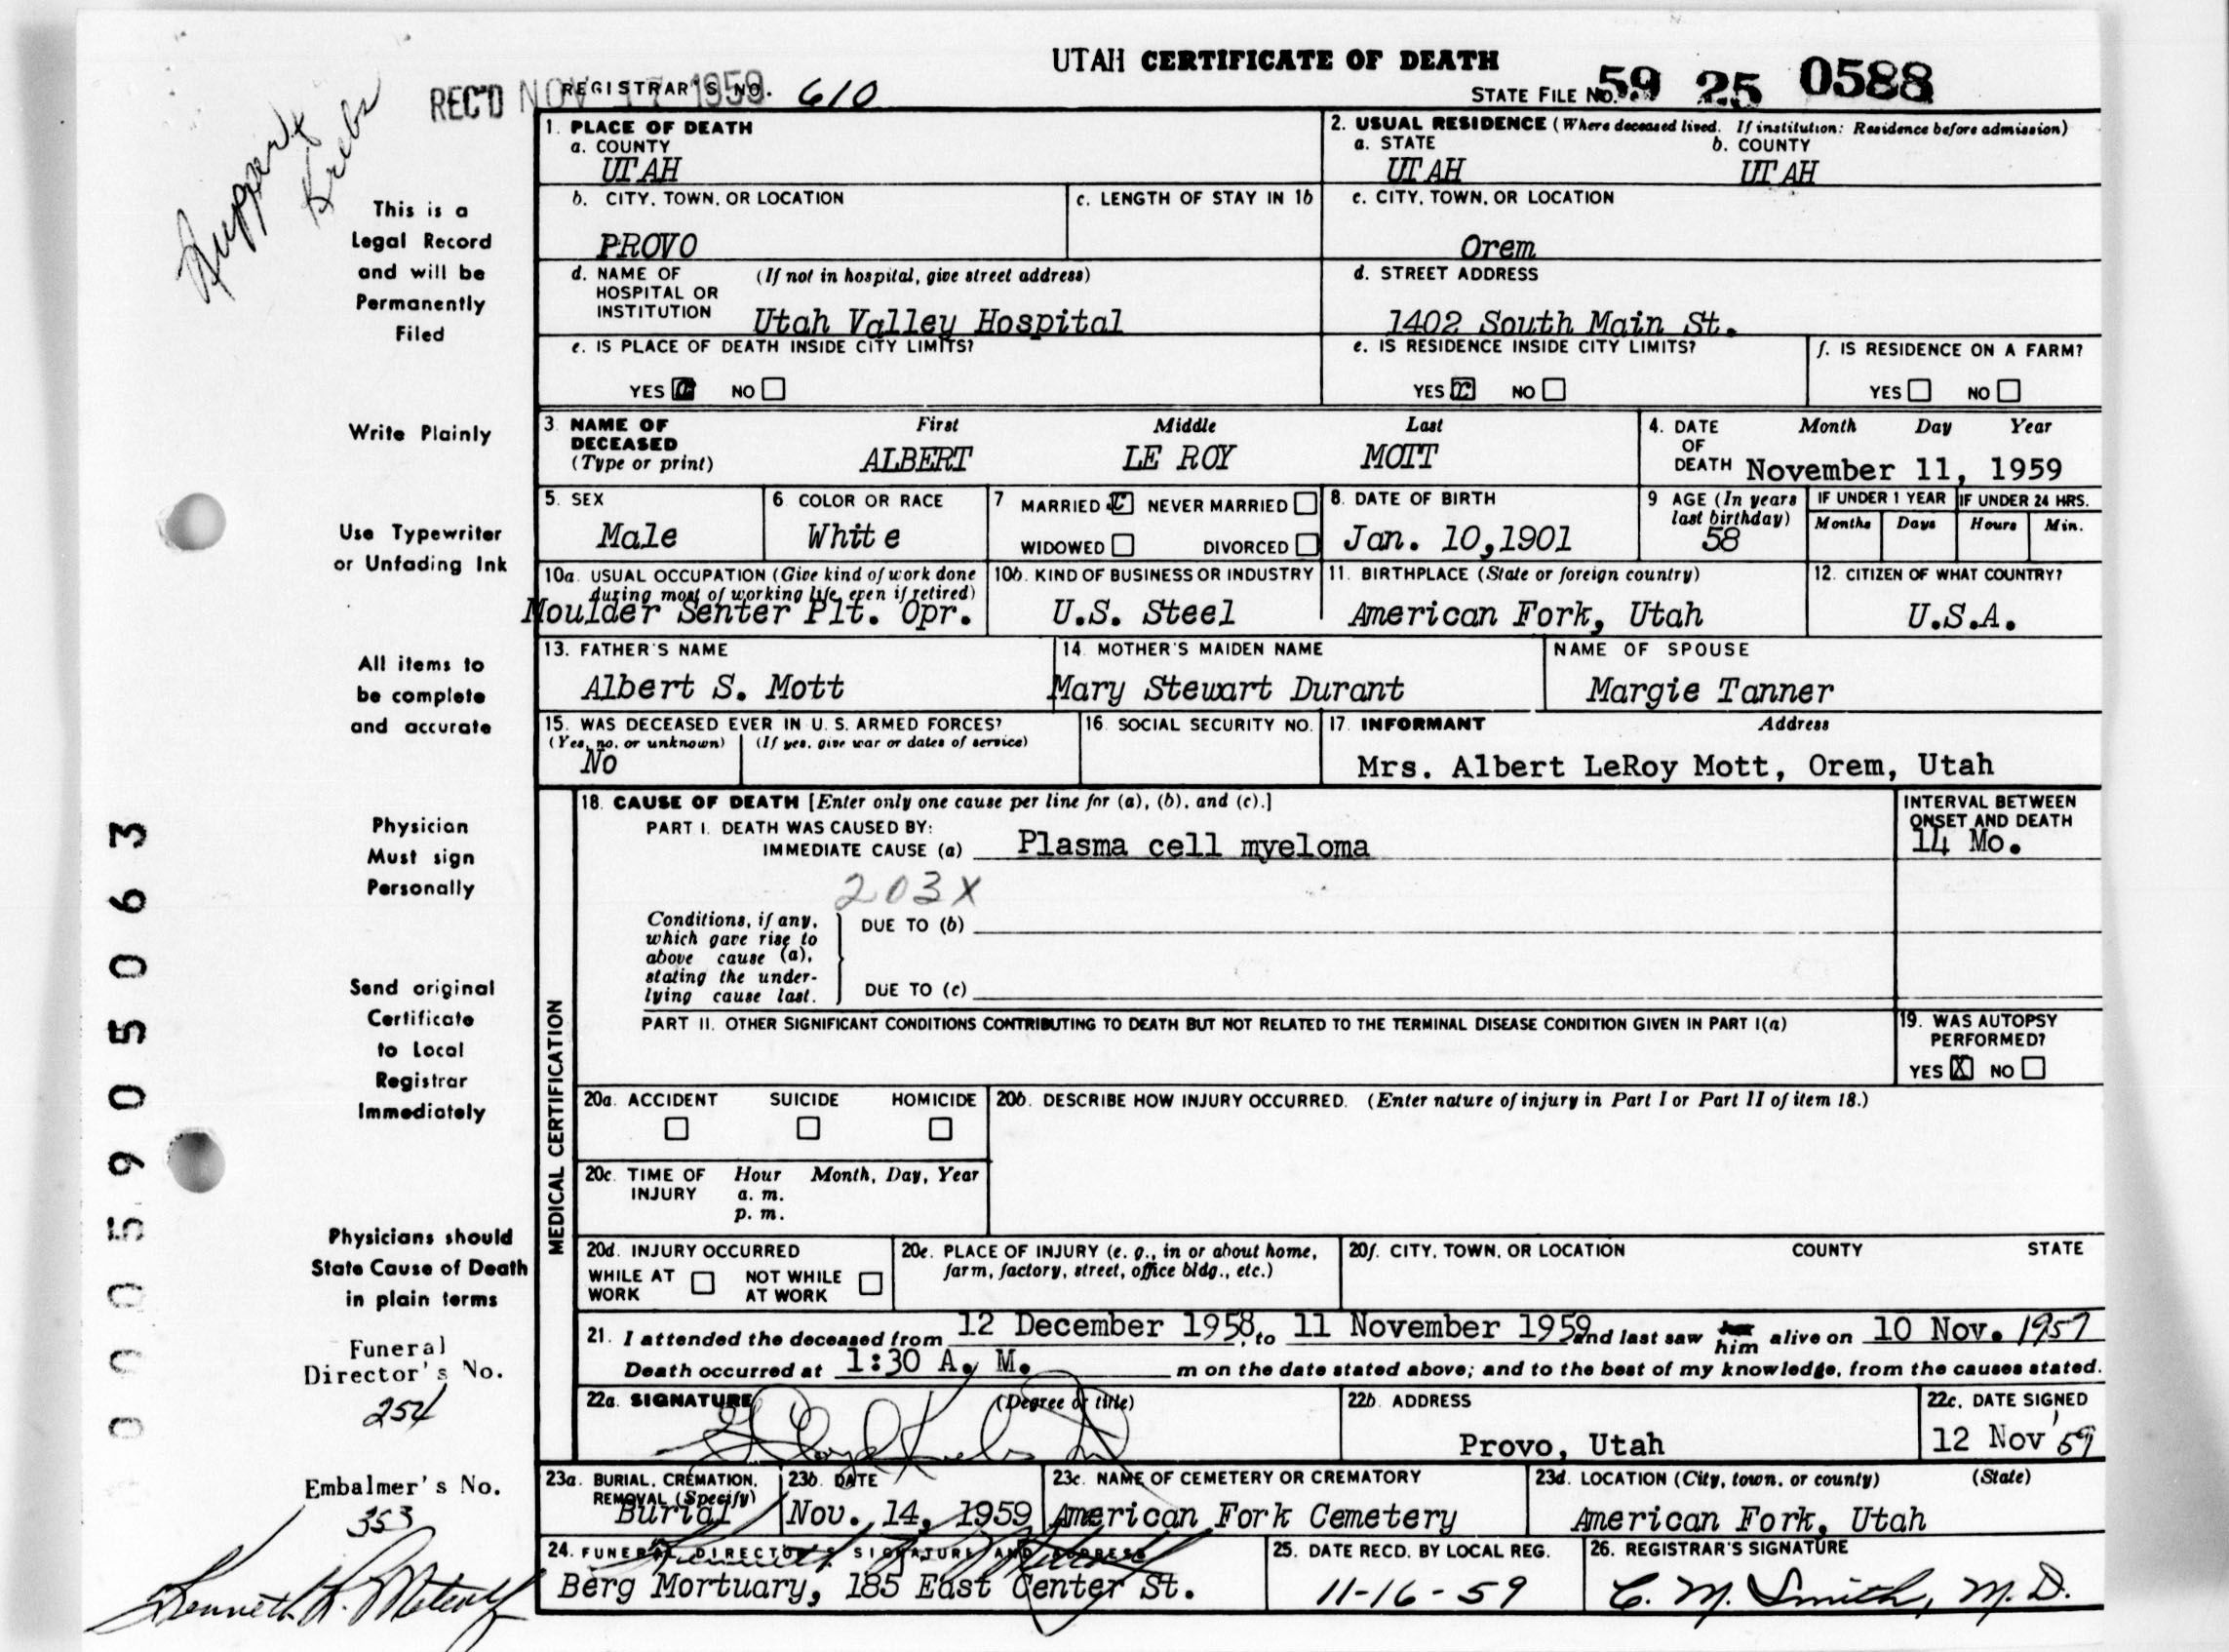 UTAH CERTIFICATE OF DEATH
REC'D NOV 17 1959
REGISTRAR'S NO. 610
STATE FILE NO. 59 25 0588
Krebs
This is a
Legal Record
and will be
Permanently
Filed
Write Plainly
Use Typewriter
or Unfading Ink
All items to
be complete
and accurate
Physician
Must sign
Personally
Send original
Certificate
to Local
Registrar
Immediately
Physicians should
State Cause of Death
in plain terms
Funeral
Director's No.
254
Embalmer's No.
353
Kenneth R. Metcalf
0005905063
1. PLACE OF DEATH
a. COUNTY
UTAH
2. USUAL RESIDENCE (Where deceased lived. If institution: Residence before admission)
a. STATE b. COUNTY
UTAH UTAH
b. CITY, TOWN, OR LOCATION
PROVO
c. LENGTH OF STAY IN 1b
c. CITY, TOWN, OR LOCATION
Orem
d. NAME OF (If not in hospital, give street address)
HOSPITAL OR
INSTITUTION Utah Valley Hospital
d. STREET ADDRESS
1402 South Main St.
e. IS PLACE OF DEATH INSIDE CITY LIMITS?
YES NO
e. IS RESIDENCE INSIDE CITY LIMITS?
YES X NO
f. IS RESIDENCE ON A FARM?
YES NO
3. NAME OF DECEASED (Type or print)
First Middle Last
ALBERT LE ROY MOTT
4. DATE OF DEATH Month Day Year
November 11, 1959
5. SEX
Male
6. COLOR OR RACE
White
7 MARRIED NEVER MARRIED
WIDOWED DIVORCED
8. DATE OF BIRTH
Jan. 10,1901
9 AGE (In years last birthday)
58
IF UNDER 1 YEAR IF UNDER 24 HRS.
Months Days Hours Min.
10a. USUAL OCCUPATION (Give kind of work done
during most of working life, even if retired)
Moulder Senter Plt. Opr.
10b. KIND OF BUSINESS OR INDUSTRY
U.S. Steel
11. BIRTHPLACE (State or foreign country)
American Fork, Utah
12. CITIZEN OF WHAT COUNTRY?
U.S.A.
13. FATHER'S NAME
Albert S. Mott
14. MOTHER'S MAIDEN NAME
Mary Stewart Durant
NAME OF SPOUSE
Margie Tanner
15. WAS DECEASED EVER IN U. S. ARMED FORCES?
(Yes, no, or unknown) (If yes, give war or dates of service)
No
16. SOCIAL SECURITY NO.
17. INFORMANT Address
Mrs. Albert LeRoy Mott, Orem, Utah
MEDICAL CERTIFICATION
18. CAUSE OF DEATH [Enter only one cause per line for (a), (b), and (c).]
PART I. DEATH WAS CAUSED BY:
IMMEDIATE CAUSE (a) Plasma cell myeloma
INTERVAL BETWEEN
ONSET AND DEATH
14 Mo.
203X
Conditions, if any,
which gave rise to
above cause (a),
stating the under-
lying cause last.
DUE TO (b)
DUE TO (c)
PART II. OTHER SIGNIFICANT CONDITIONS CONTRIBUTING TO DEATH BUT NOT RELATED TO THE TERMINAL DISEASE CONDITION GIVEN IN PART I(a)
19. WAS AUTOPSY
PERFORMED?
YES X NO
20a. ACCIDENT SUICIDE HOMICIDE
20b. DESCRIBE HOW INJURY OCCURRED. (Enter nature of injury in Part I or Part II of item 18.)
20c. TIME OF INJURY Hour Month, Day, Year
a. m.
p. m.
20d. INJURY OCCURRED
WHILE AT WORK NOT WHILE AT WORK
20e. PLACE OF INJURY (e. g., in or about home,
farm, factory, street, office bldg., etc.)
20f. CITY, TOWN, OR LOCATION COUNTY STATE
21. I attended the deceased from 12 December 1958, to 11 November 1959 and last saw him alive on 10 Nov. 1959
Death occurred at 1:30 A. M. m on the date stated above; and to the best of my knowledge, from the causes stated.
22a. SIGNATURE (Degree or title)
G Lloyd Krebs MD
22b. ADDRESS
Provo, Utah
22c. DATE SIGNED
12 Nov '59
23a. BURIAL, CREMATION,
REMOVAL (Specify)
Burial
23b. DATE
Nov. 14, 1959
23c. NAME OF CEMETERY OR CREMATORY
American Fork Cemetery
23d. LOCATION (City, town, or county) (State)
American Fork, Utah
24. FUNERAL DIRECTOR'S SIGNATURE AND ADDRESS
Berg Mortuary, 185 East Center St.
25. DATE RECD. BY LOCAL REG.
11-16-59
26. REGISTRAR'S SIGNATURE
C. M. Smith, M.D.